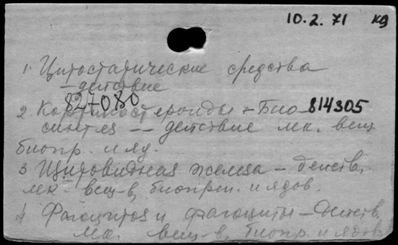 10.2.71 КФ
1 Цитостатические средства
– действие
827080
2 Кортикостероиды – Био 814305
синтез -- действие лек. вещ
биопр. и яд.
3 Щитовидная железа – действ.
лек. вещ-в, биопреп. и ядов.
4 Фагоцитоз и фагоциты – Действ.
лек. вещ-в, биопр. и ядов